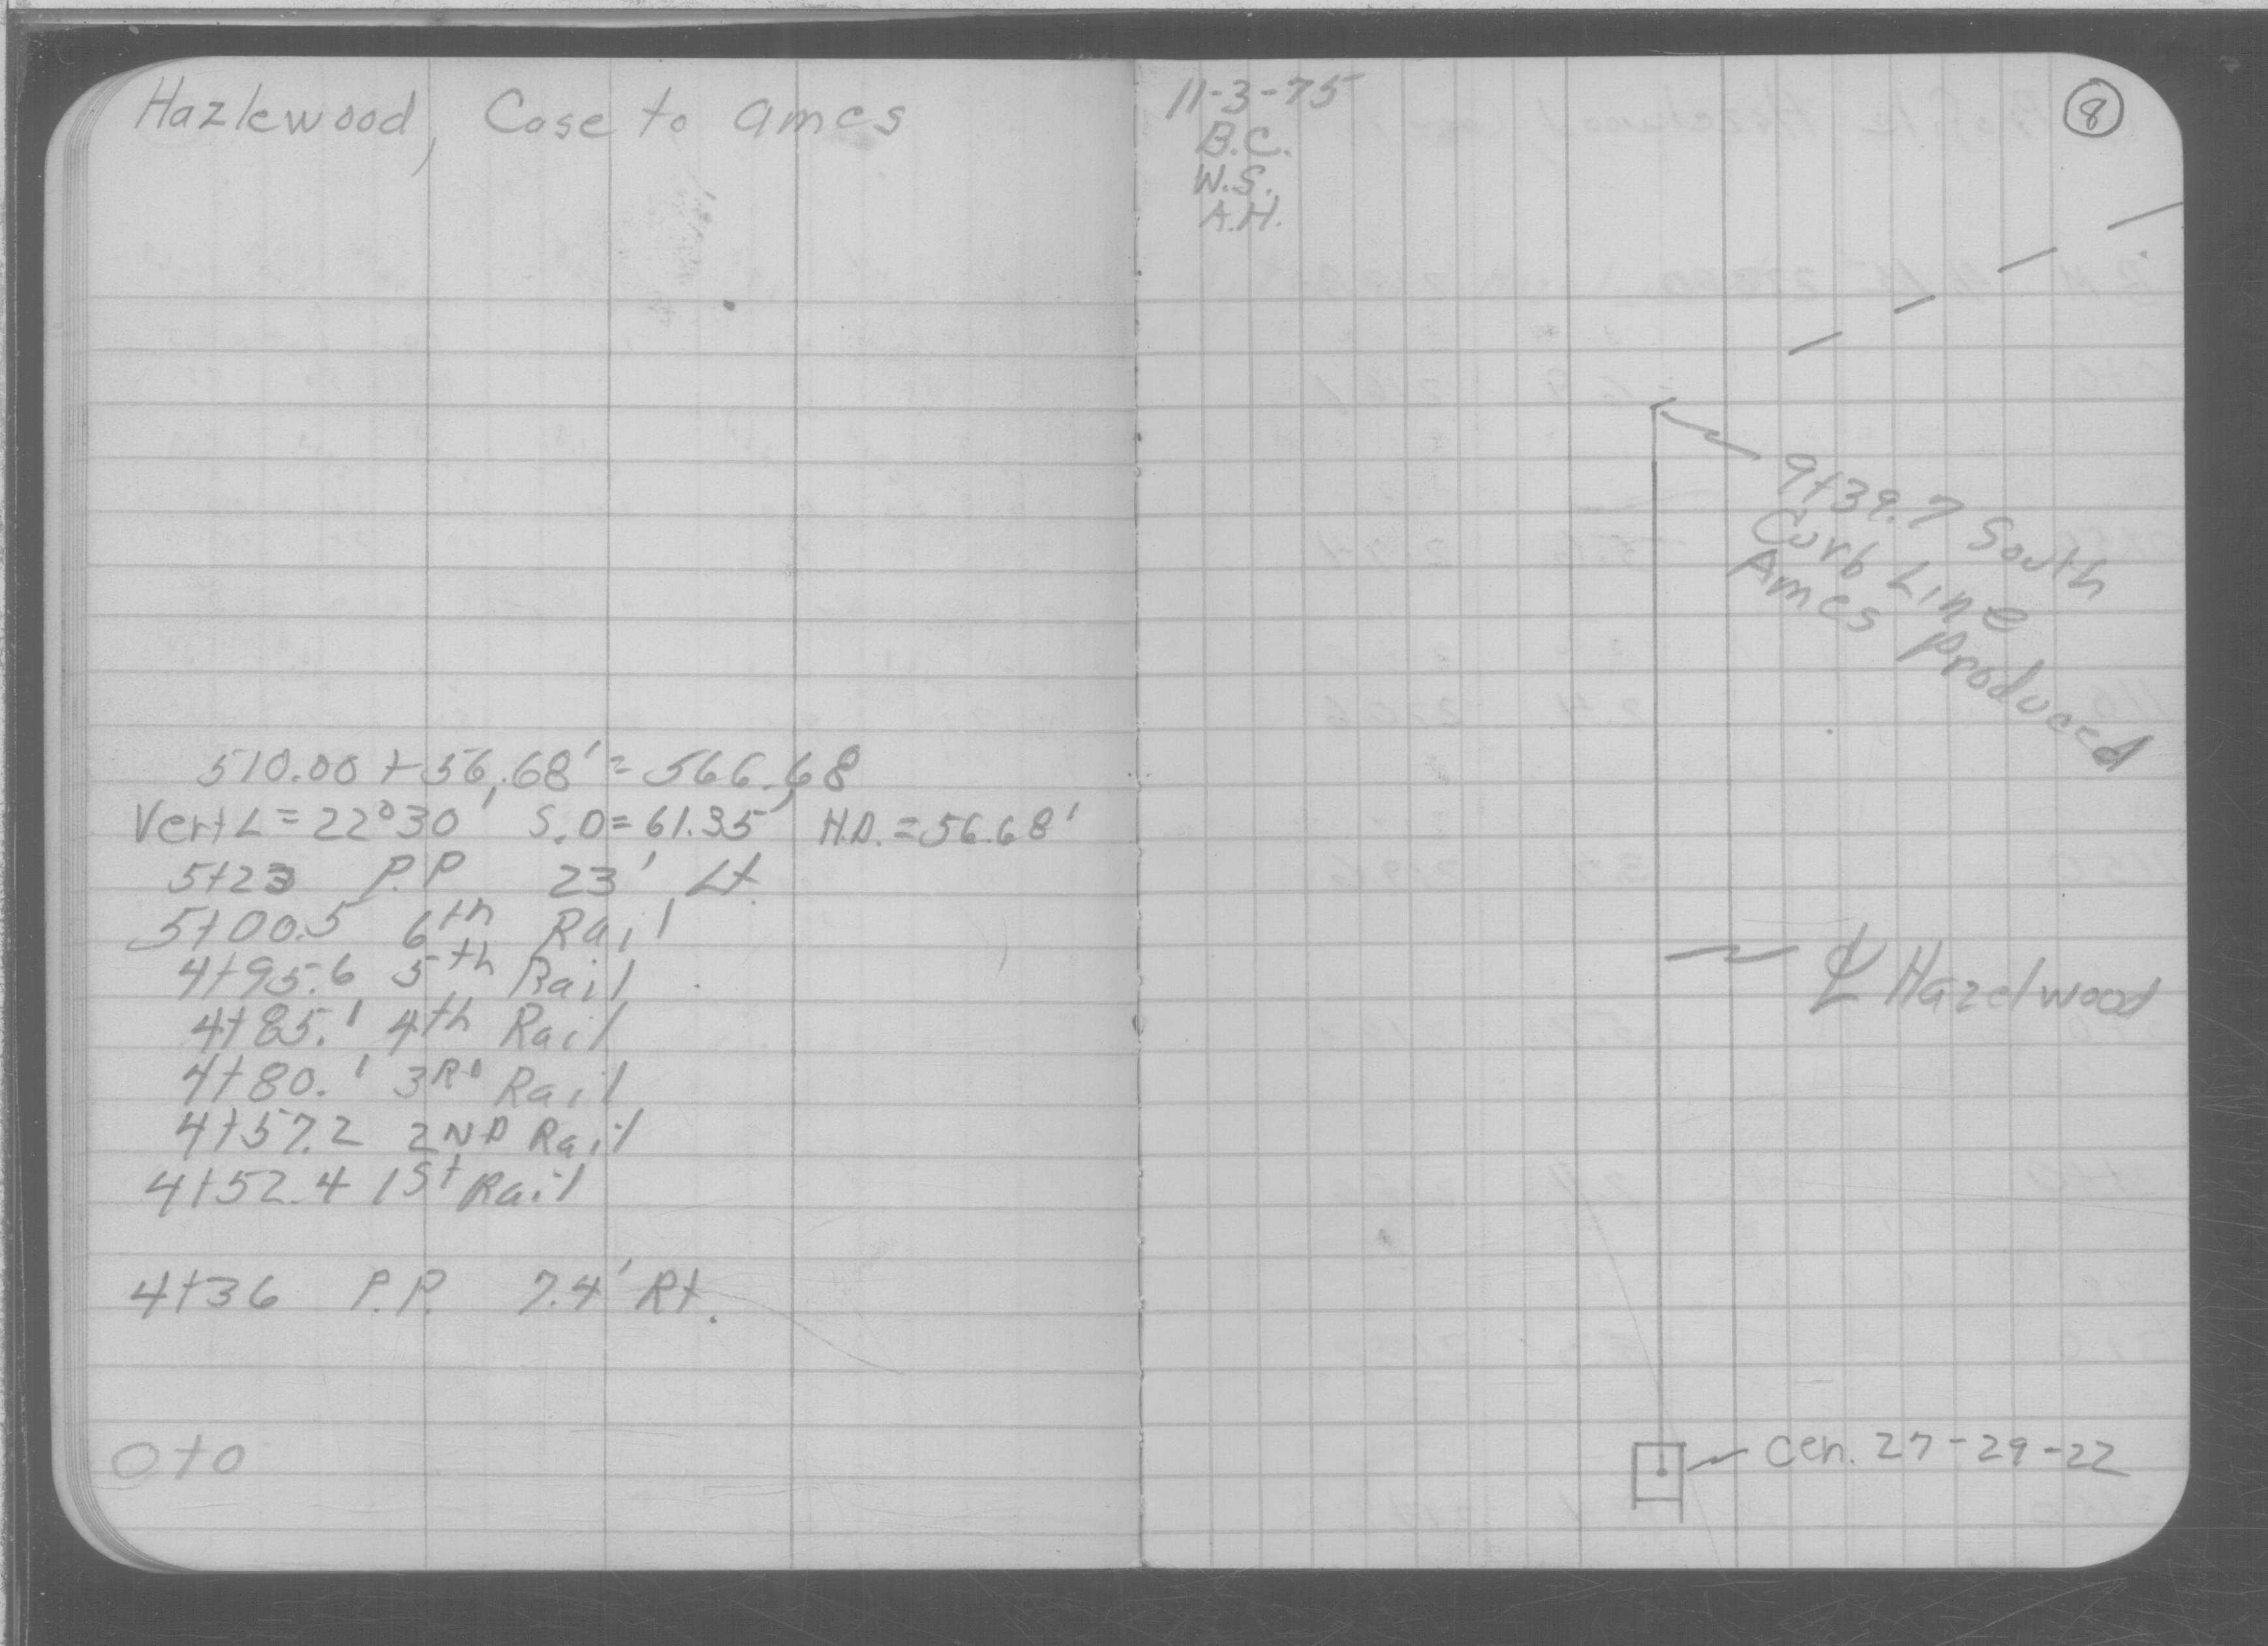 Hazlewood, Case to Ames
510.00 + 56.68' = 566.68
Vert ∠ = 22°30' S.D = 61.35' H.D. = 56.68'
5+23 P.P 23' Lt.
5+00.5 6th Rail
4+95.6 5th Rail
4+85.' 4th Rail
4+80.' 3RD Rail
4+57.2 2ND Rail
4+52.4 1st Rail
4+36 P.P. 7.4' Rt.
0+0
11-3-75
B.C.
W.S.
A.H.
8
9+39.7 South
Curb Line
Ames Produced
℄ Hazelwood
Cen. 27-29-22